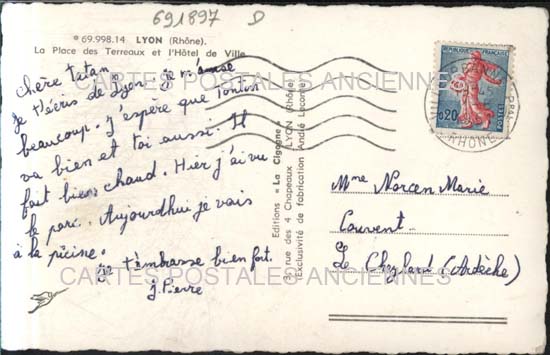 691897 D
° 69.998.14 LYON (Rhône).
La Place des Terreaux et l'Hôtel de Ville
Chère Tatan
Je t'écris de Lyon. je m'amuse
beaucoup. j'espère que Tonton
va bien et toi aussi. Il
fait bien chaud. Hier j'ai vu
le parc. Aujourd'hui je vais
à la piscine.
je t'embrasse bien fort.
J. Pierre
Editions « La Cigogne »
3, rue des 4 Chapeaux LYON (Rhône)
Exclusivité de fabrication André Leconte
REPUBLIQUE FRANÇAISE
0,20
POSTES
RHONE
Mme Narcen Marie
Couvent
Le Cheylard (Ardèche)
CARTES POSTALES ANCIENNES
CARTES POSTALES ANCIENNES